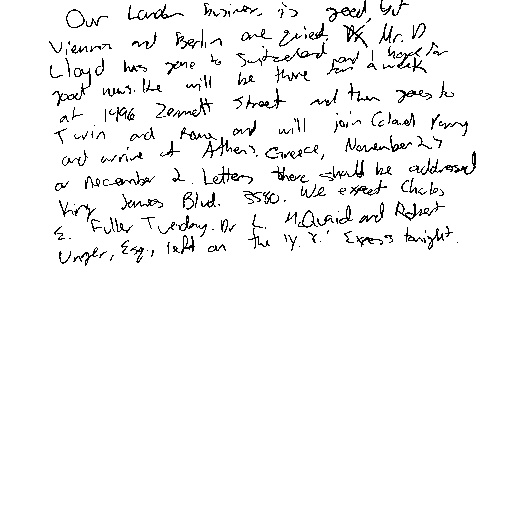 Our London business is good, but
Vienna and Berlin are quiet. Mr. D
Lloyd has gone to Switzerland and I hope for
good news. He will be there for a week
at 1496 Zermott Street and then goes to
Turin and Rome and will join Colonel Parry
and arrive at Athens, Greece, November 27
or December 2. Letters there should be addressed
King James Blvd. 3580. We expect Charles
E. Fuller Tuesday. Dr L. McQuaid and Robert
Unger, Esq., left on the 'Y.X.' Express tonight.